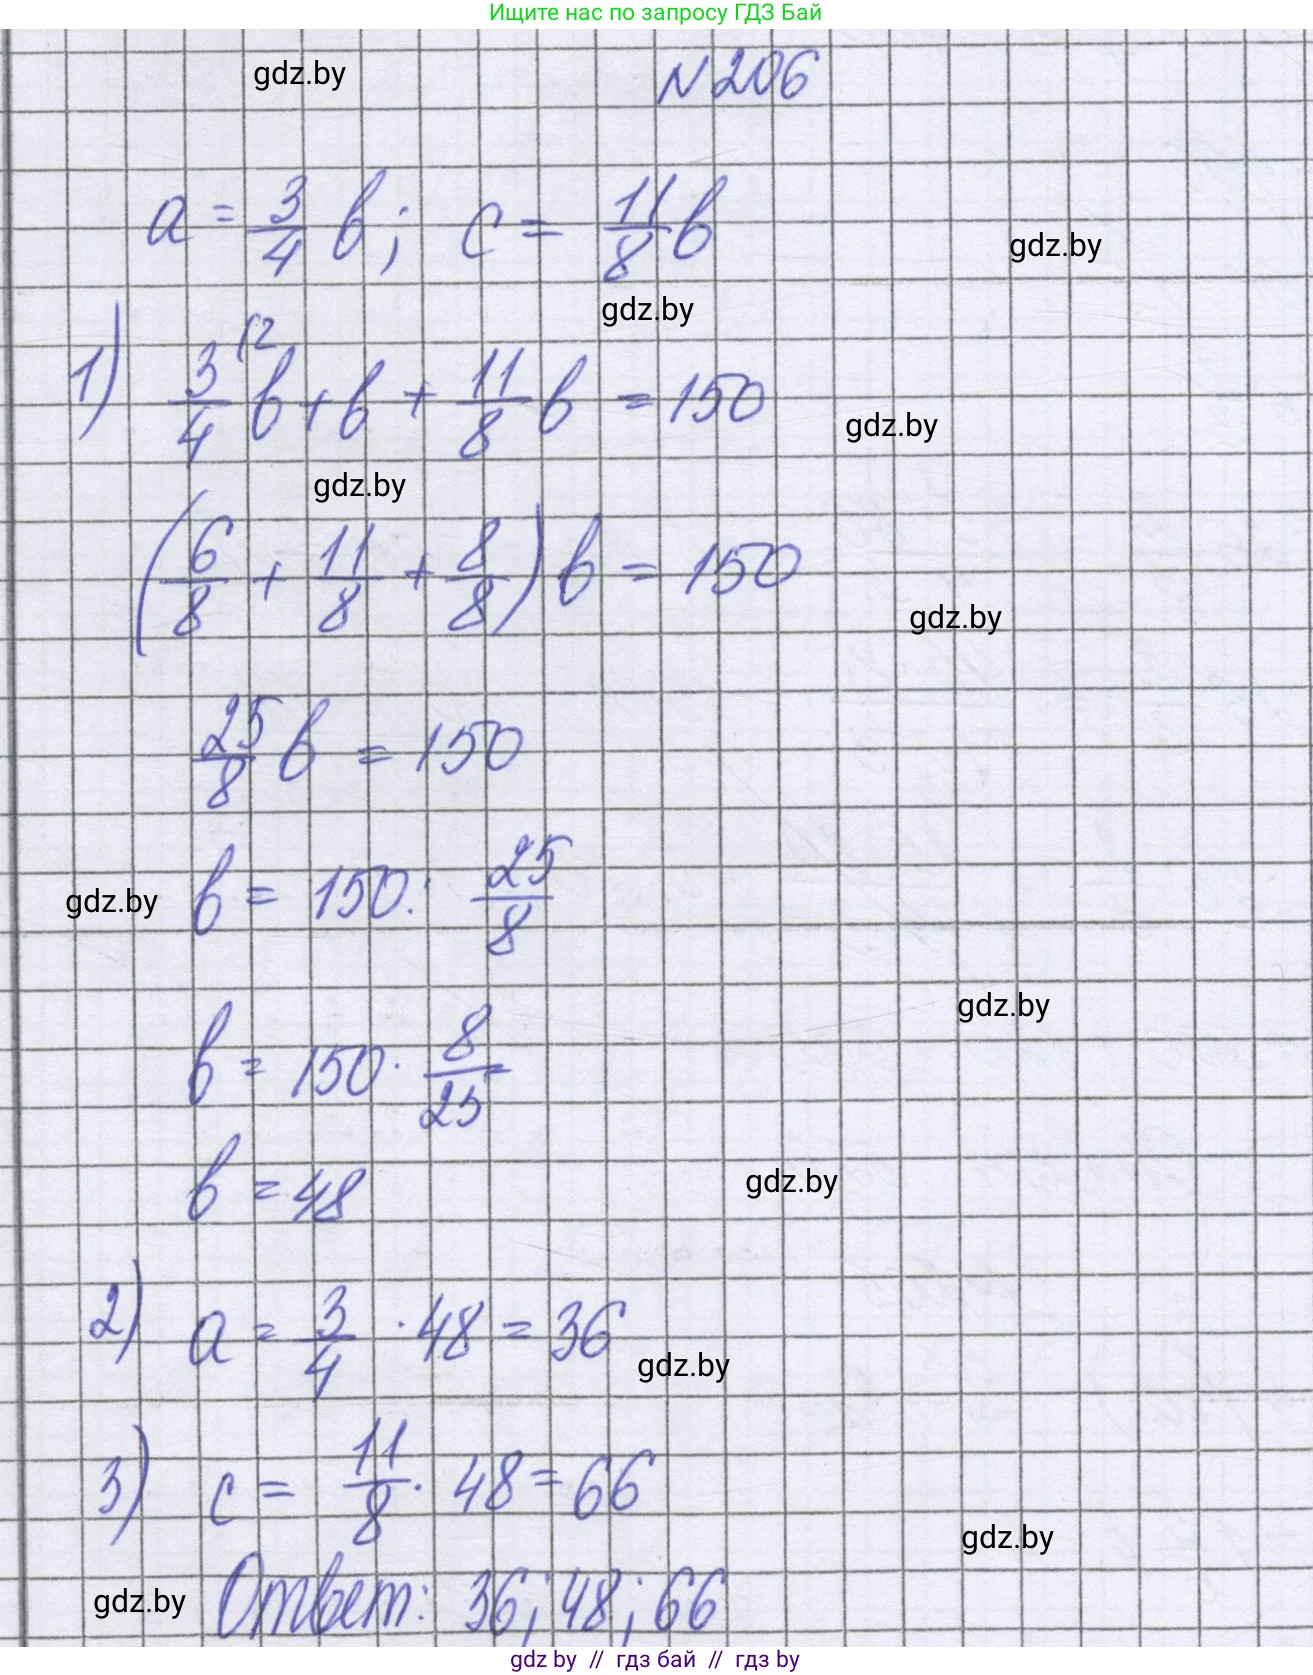 Ищите нас по запросу ГДЗ Бай
gdz.by
N 206
a = 3/4 в; c = 11/8 в
gdz.by
gdz.by
1) 3/4 (2 в + в + 11/8 в = 150
gdz.by
gdz.by
(6/8 + 11/8 + 8/8) в = 150
gdz.by
25/8 в = 150
gdz.by
в = 150 : 25/8
gdz.by
в = 150 · 8/25
gdz.by
в = 48
2) a = 3/4 · 48 = 36
gdz.by
3) c = 11/8 · 48 = 66
gdz.by
gdz.by
Ответ: 36; 48; 66
gdz by // гдз бай // гдз by